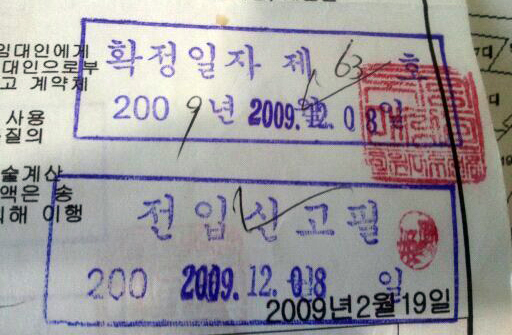 임대인에게
대인으로부
고 계약체
사용
술계산
액은 송
의해 이행
확정일자 제 63 호
200 9년 2009.12.08 일
전입신고필
200 2009.12.08 일
2009년2월19일